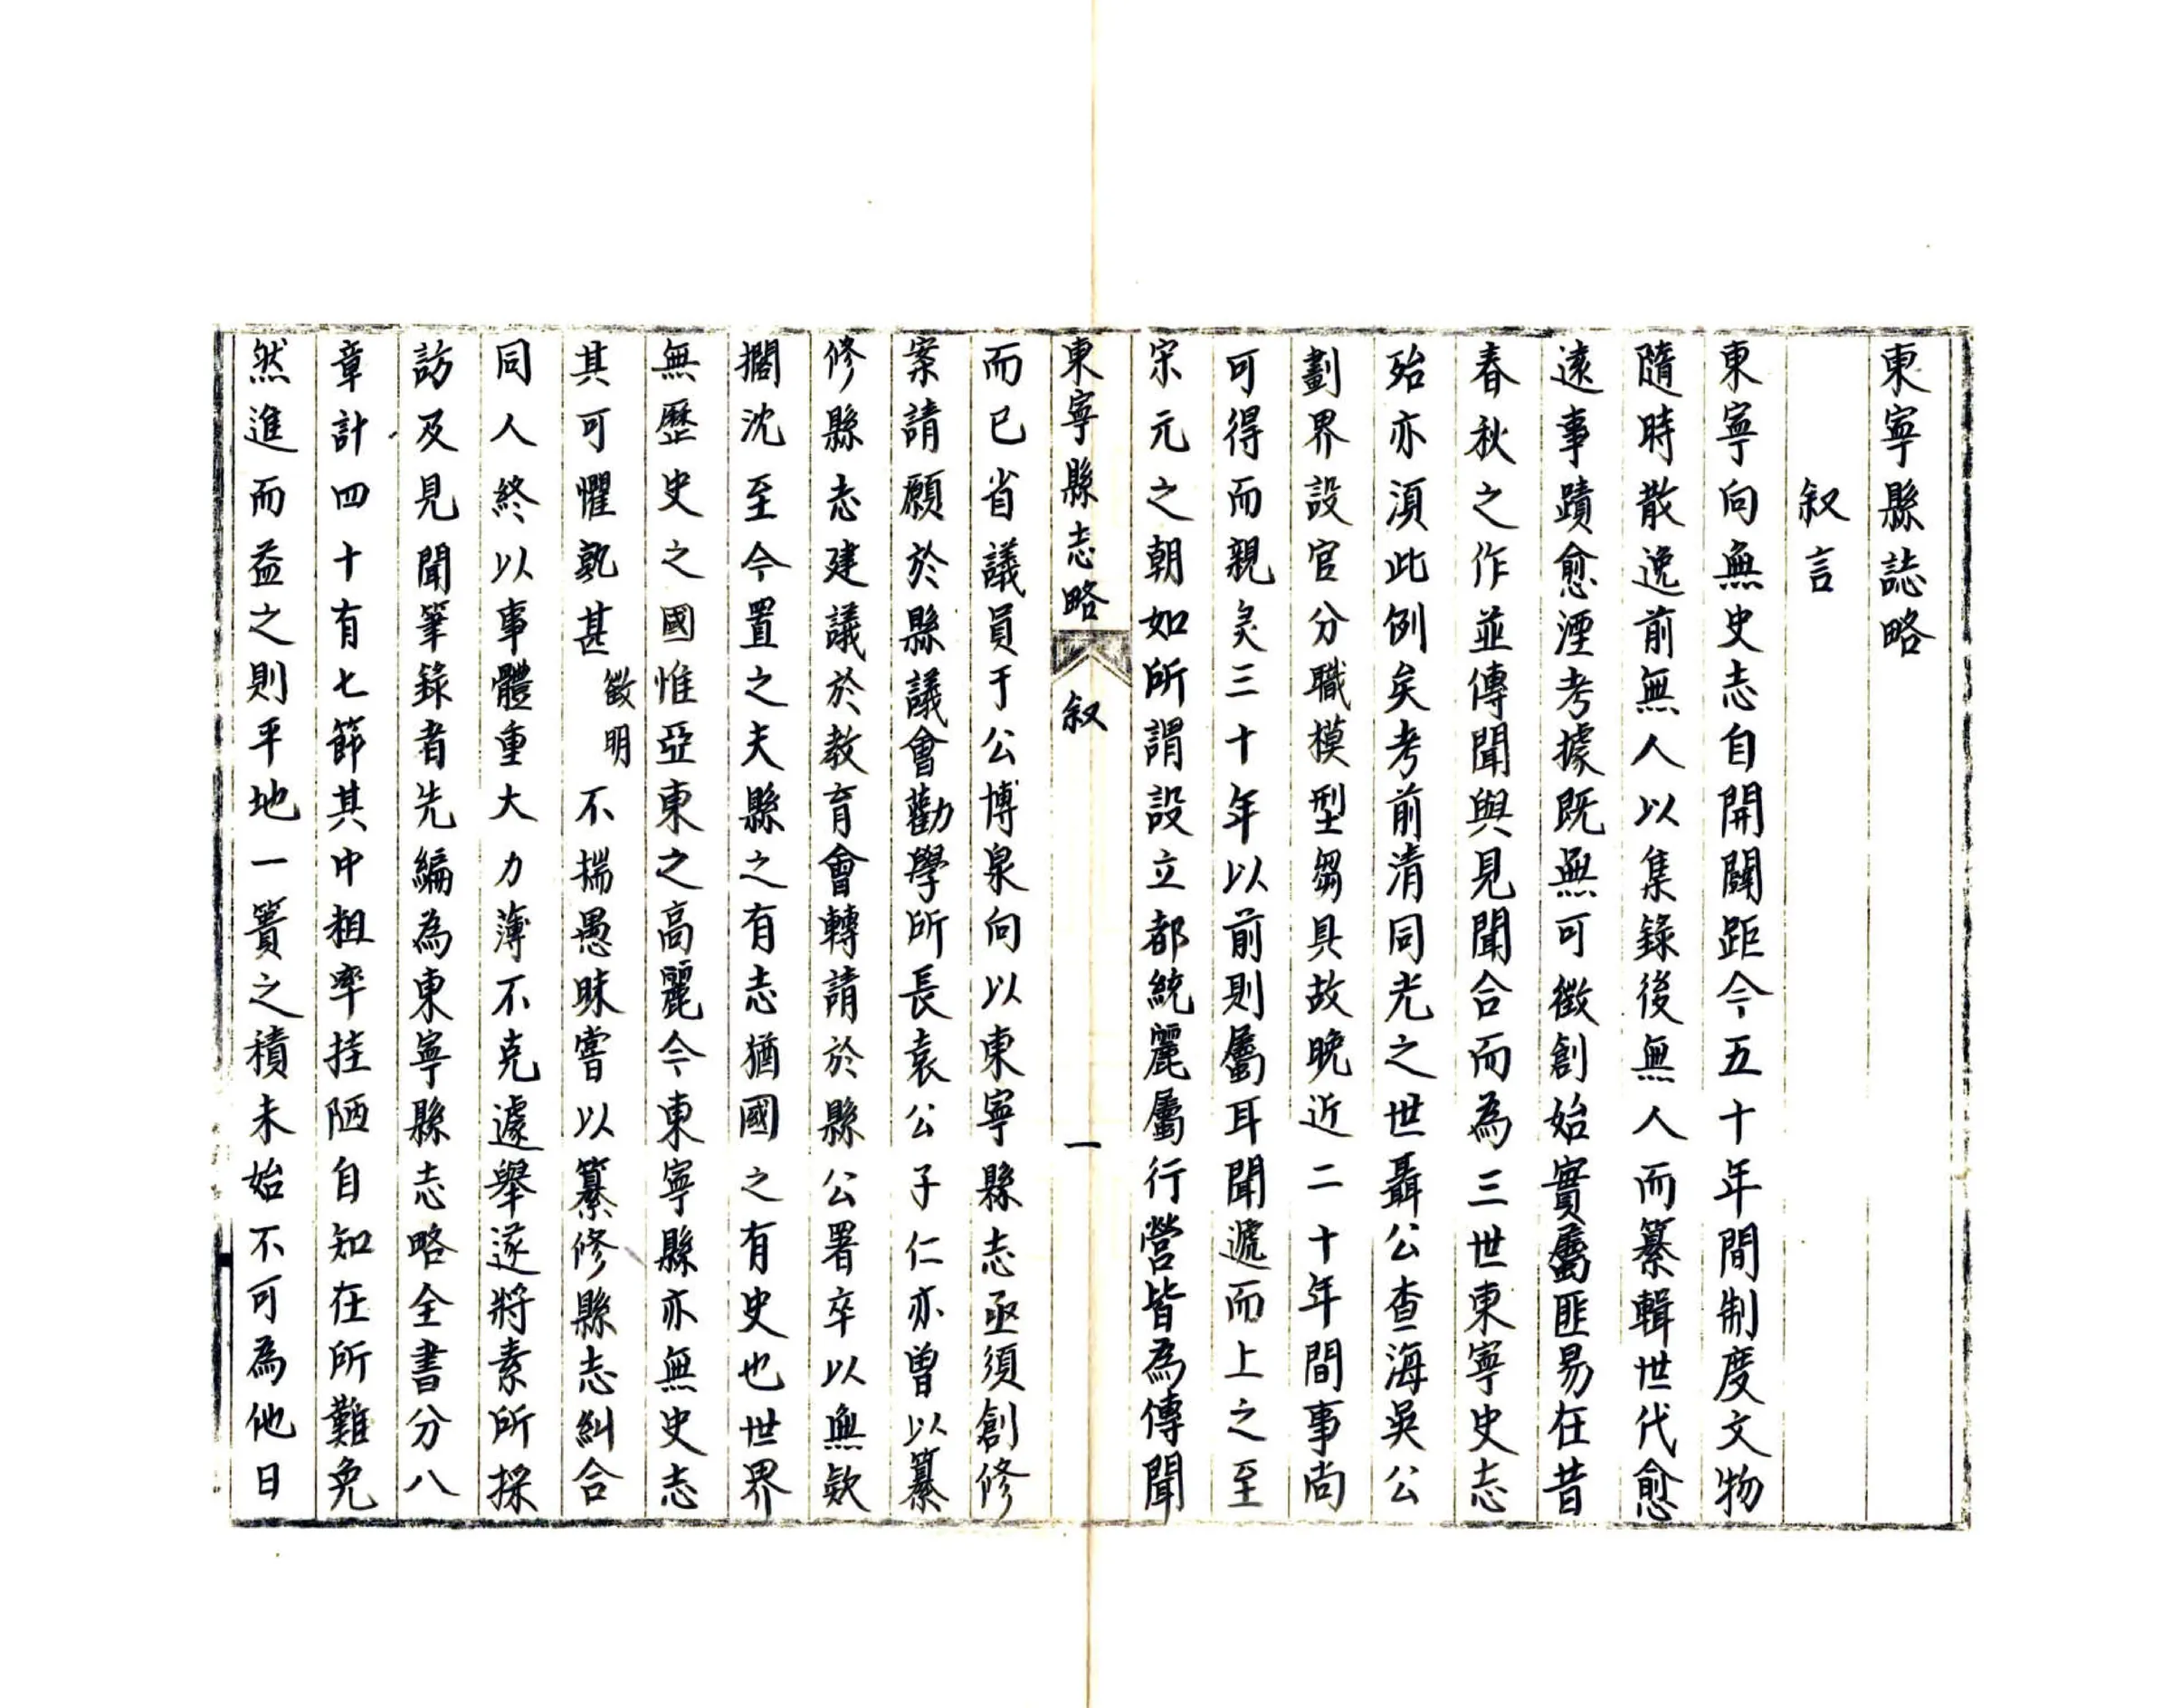 東寧縣誌略
叙言
東寧向無史志自開闢距今五十年間制度文物
隨時散逸前無人以集錄後無人而纂輯世代愈
遠事蹟愈湮考據既無可徵創始實屬匪易在昔
春秋之作並傳聞與見聞合而為三世東寧史志
殆亦須此例矣考前清同光之世聶公查海吳公
劃界設官分職模型芻具故晚近二十年間事尚
可得而親矣三十年以前則屬耳聞遞而上之至
宋元之朝如所謂設立都統麗屬行營皆為傳聞
東寧縣志略
叙
一
而已省議員于公博泉向以東寧縣志亟須創修
案請願於縣議會勸學所長袁公子仁亦曾以纂
修縣志建議於教育會轉請於縣公署卒以無欵
擱沈至今置之夫縣之有志猶國之有史也世界
無歷史之國惟亞東之高麗今東寧縣亦無史志
其可懼孰甚徵明不揣愚昧嘗以纂修縣志糾合
同人終以事體重大力薄不克遽舉遂將素所採
訪及見聞筆錄者先編為東寧縣志略全書分八
章計四十有七節其中粗率挂陋自知在所難免
然進而益之則平地一簣之積未始不可為他日